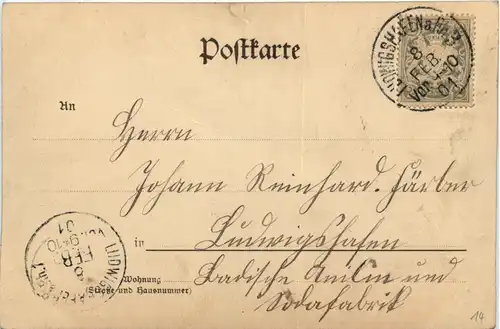 Postkarte
LUDWIGSHAFEN a. Rh. 2
8
FEB
VOR 9-10
01
An
Herrn
Johann Reinhard. Härber
in Ludwigshafen
Wohnung
(Straße und Hausnummer)
Badische Anilin und
Sodafabrik
LUDWIGSHAFEN
8
FEB
9-10
01
14